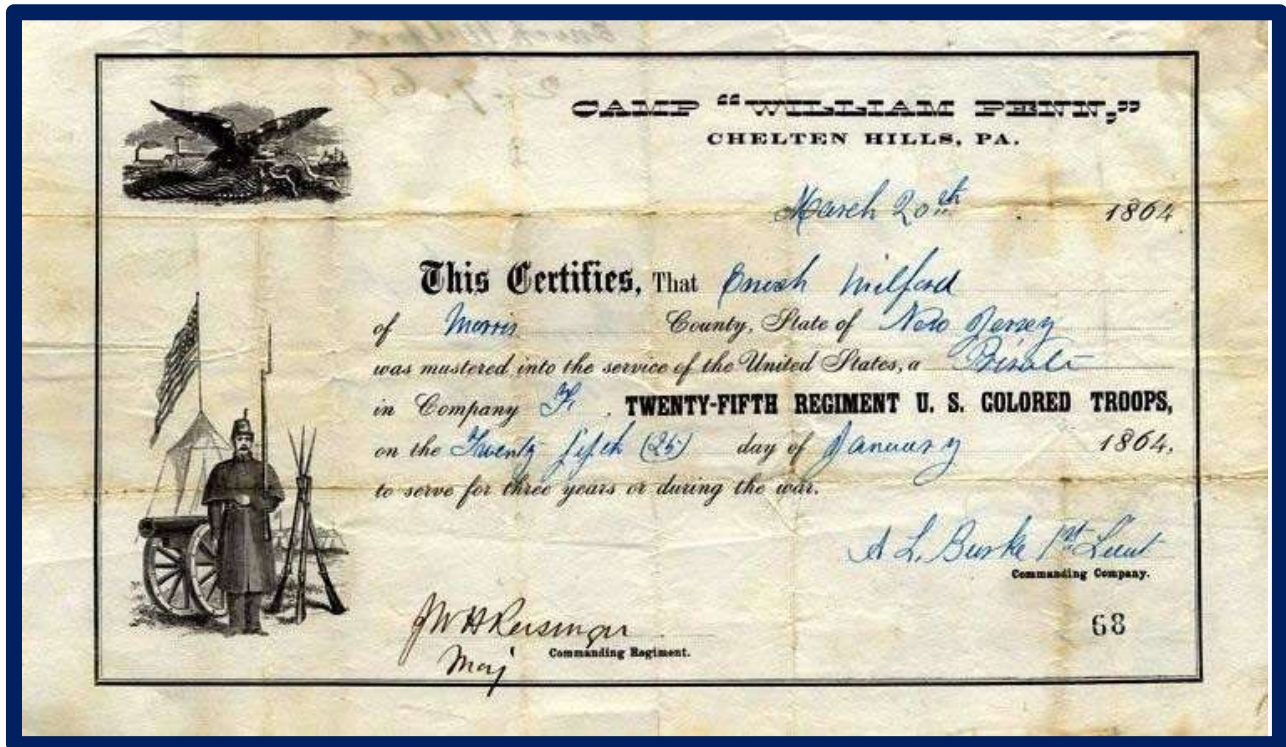 CAMP "WILLIAM PENN,"
CHELTEN HILLS, PA.
March 20th 1864
This Certifies, That Enoch Milford
of Morris County, State of New Jersey
was mustered into the service of the United States, a Private
in Company F. TWENTY-FIFTH REGIMENT U. S. COLORED TROOPS,
on the Twenty fifth (25) day of January 1864,
to serve for three years or during the war.
A L. Burke 1st Lieut
Commanding Company.
68
JWH Reisinger
Maj Commanding Regiment.